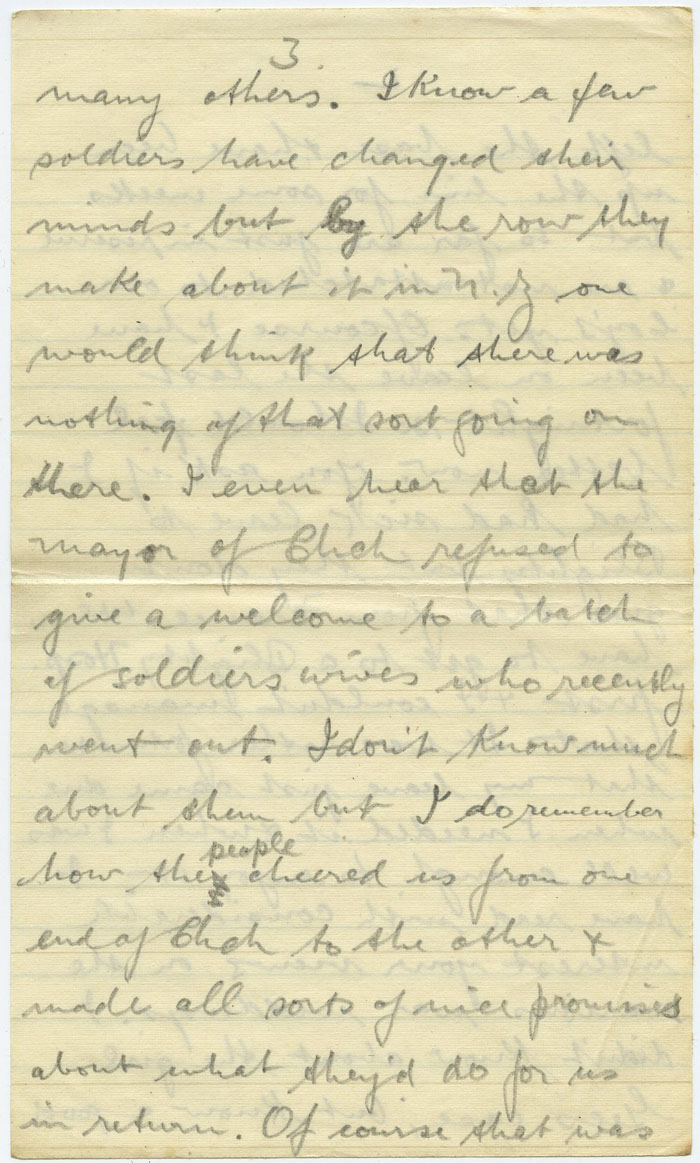 3.
many others. I know a few
soldiers have changed their
minds but by the row they
make about it in N.Z one
would think that there was
nothing of that sort going on
there. I even hear that the
mayor of Chch refused to
give a welcome to a batch
of soldiers wives who recently
went out. I don't know much
about them but I do remember
people
how the cheered us from one
end of Chch to the other +
made all sorts of nice promises
about what they'd do for us
in return. Of course that was